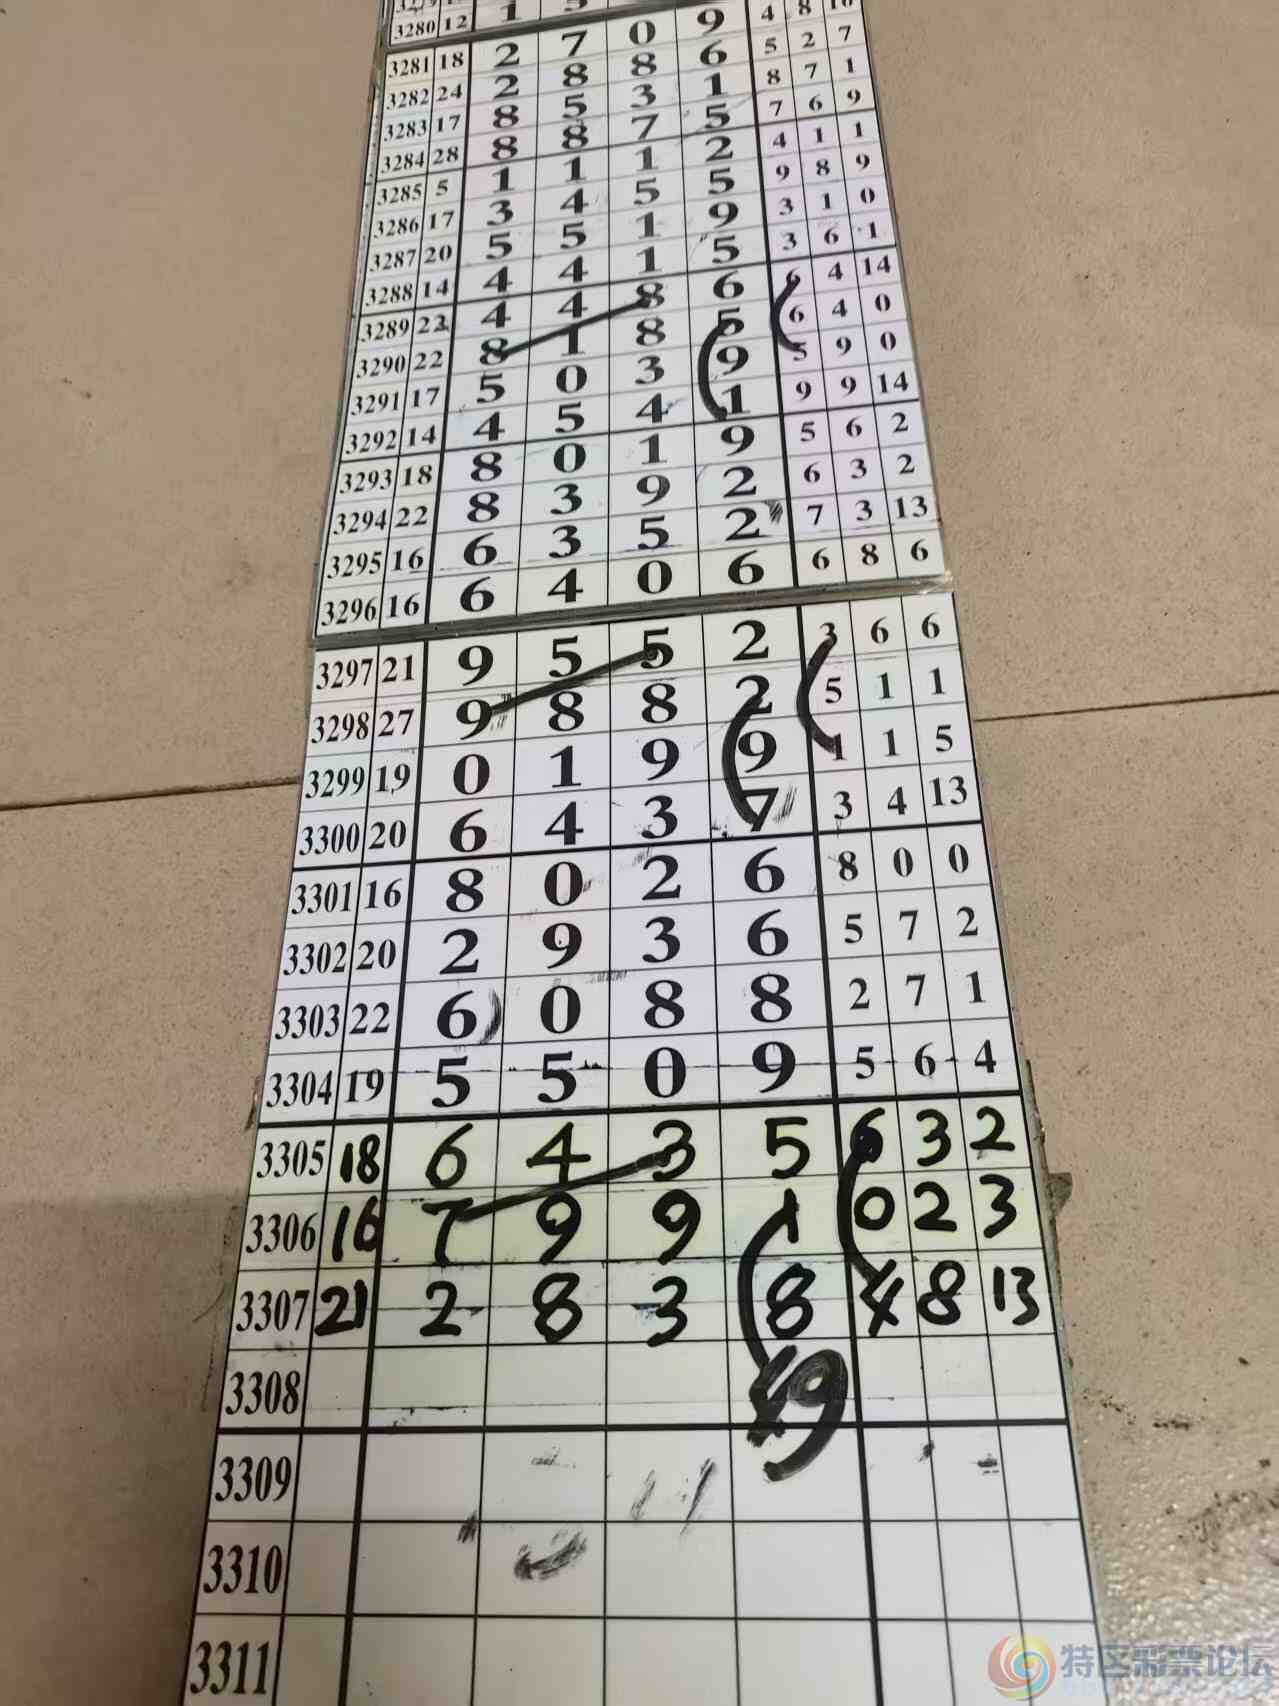 3280 12 1 9 4 8 10
3281 18 2 7 0 9 5 2 7
3282 24 2 8 8 6 8 7 1
3283 17 8 5 3 1 7 6 9
3284 28 8 8 7 5 4 1 1
3285 5 1 1 1 2 9 8 9
3286 17 3 4 5 5 3 1 0
3287 20 5 5 1 9 3 6 1
3288 14 4 4 1 5 6 4 14
3289 22 4 4 8 6 6 4 0
3290 22 8 1 8 5 5 9 0
3291 17 5 0 3 9 9 9 14
3292 14 4 5 4 1 5 6 2
3293 18 8 0 1 9 6 3 2
3294 22 8 3 9 2 7 3 13
3295 16 6 3 5 2 6 8 6
3296 16 6 4 0 6
3297 21 9 5 5 2 3 6 6
3298 27 9 8 8 2 5 1 1
3299 19 0 1 9 9 1 1 5
3300 20 6 4 3 7 3 4 13
3301 16 8 0 2 6 8 0 0
3302 20 2 9 3 6 5 7 2
3303 22 6 0 8 8 2 7 1
3304 19 5 5 0 9 5 6 4
3305 18 6 4 3 5 6 3 2
3306 16 7 9 9 1 0 2 3
3307 21 2 8 3 8 4 8 13
3308 49
3309
3310
3311
特区彩票论坛